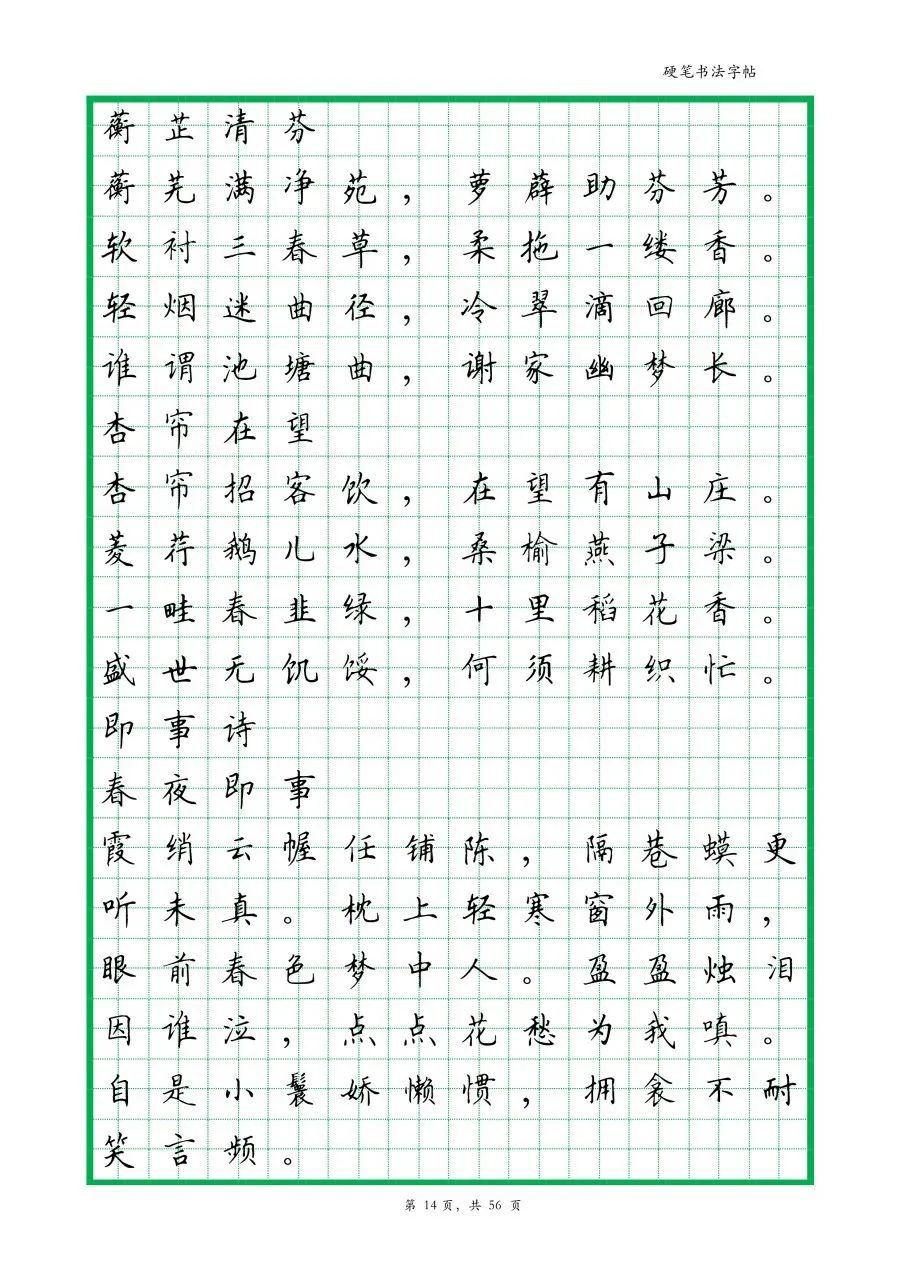 硬笔书法字帖
蘅芷清芬
蘅芜满净苑，萝薜助芬芳。
软衬三春草，柔拖一缕香。
轻烟迷曲径，冷翠滴回廊。
谁谓池塘曲，谢家幽梦长。
杏帘在望
杏帘招客饮，在望有山庄。
菱荇鹅儿水，桑榆燕子梁。
一畦春韭绿，十里稻花香。
盛世无饥馁，何须耕织忙。
即事诗
春夜即事
霞绡云幄任铺陈，隔巷蟆更
听未真。枕上轻寒窗外雨，
眼前春色梦中人。盈盈烛泪
因谁泣，点点花愁为我嗔。
自是小鬟娇懒惯，拥衾不耐
笑言频。
第 14 页，共 56 页